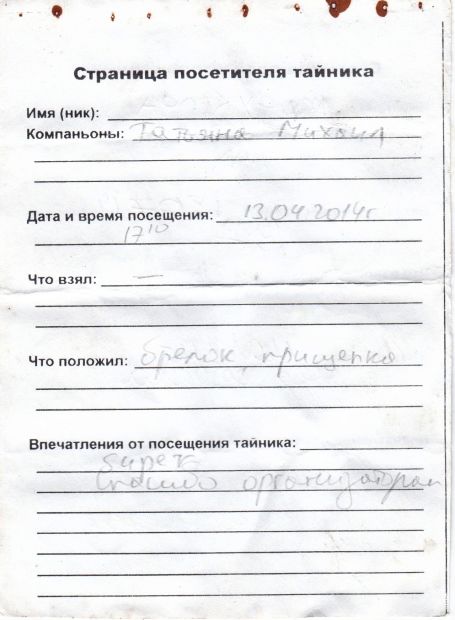 Страница посетителя тайника
Имя (ник):
Компаньоны: Татьяна Михаил
Дата и время посещения: 13.04 2014г
17 10
Что взял: —
Что положил: брелок, прищепка
Впечатления от посещения тайника:
Спасибо организаторам